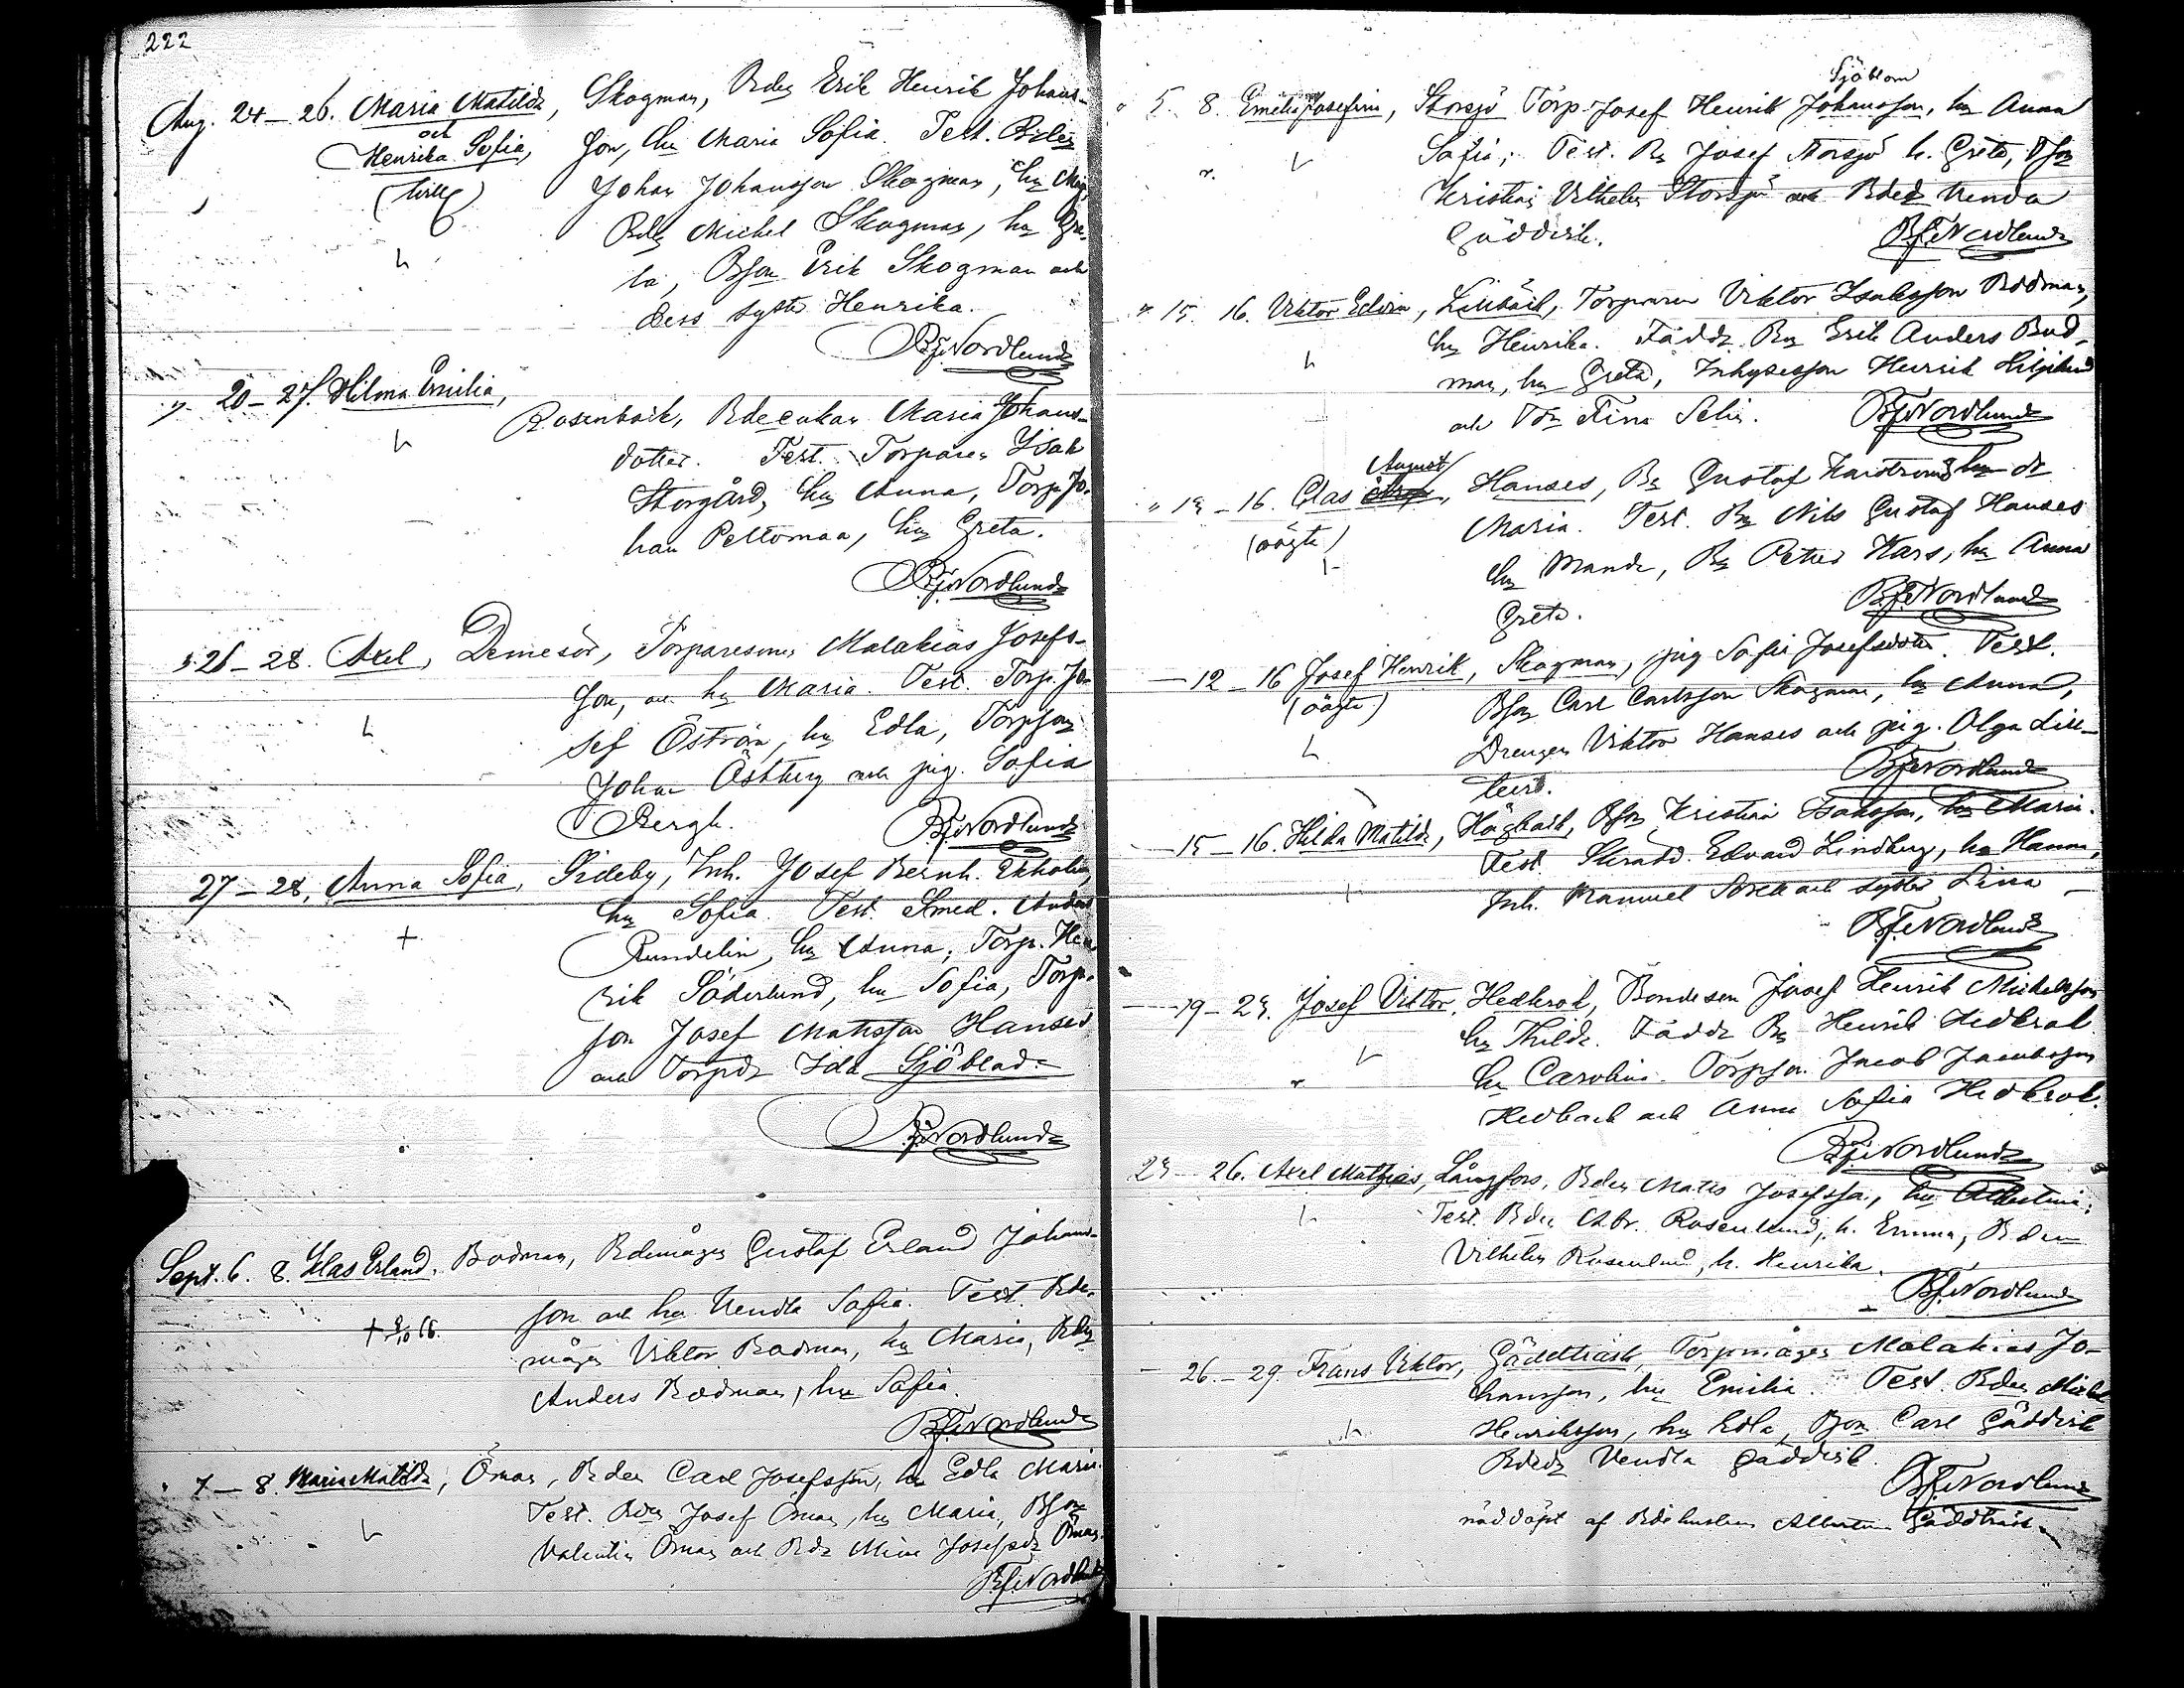 222
Aug. 24–26. Maria Matilda, Skogman, Bden Erik Henrik Johans-
och
Henrika Sofia, son, hu Maria Sofia. Test. Bden
(tvill) Johan Johansson Skogman, hu Maj,
Bden Michel Skogman, hu Gre-
ta, Bson Erik Skogman och
dess syster Henrika.
Nordlund
20–27. Hilma Emilia,
Rosenback, Bdeenkan Maria Johans-
dotter. Test. Torparen Isak
Storgård, hu Anna, Torp. Jo-
han Peltomaa, hu Greta.
Nordlund
26–28. Axel, Demesör, Torparesonen Malakias Josefs-
son, och hu Maria. Test. Torp. Jo-
sef Öström, hu Edla, Torpson
Johan Östberg och pig. Sofia
Bergh. Nordlund
27–28. Anna Sofia, Sideby, Inh. Josef Bernh. Ekholm,
hu Sofia. Test. Smed. Anders
Rundelin, hu Anna, Torp. Hen
rik Söderlund, hu Sofia, Torp.
son Josef Mattsson Hanses
och Torpdr Ida Sjöblad.
Nordlund
Sept. 6. 8. Klas Erland, Bodman, Bdemågen Gustaf Erland Johans-
son och hu Vendla Sofia. Test. Bde-
mågen Viktor Bodman, hu Maria, Bden
Anders Bodman, hu Sofia.
Nordlund
7–8. Maria Matilda, Öman, Bden Carl Josefsson, hu Edla Maria.
Test. Bden Josef Öman, hu Maria, Bson
Valentin Öman och Bdr Mina Josefsdr Öman.
Nordlund
Sjöblom
5. 8. Emilia Josefina, Storsjö Torp. Josef Henrik Johansson, hu Anna
Sofia; Test. Bn Josef Storsjö h. Greta, Bson
Kristian Vilhelm Storsjö och Bdedr Vendla
Gäddisk. Nordlund
15. 16. Viktor Edvin, Lillbäck, Torparen Viktor Isaksson Bodman,
hu Henrika. Faddr Bn Erik Anders Bod-
man, hu Greta, Inhysesson Henrik
och Fina Selin. Nordlund
August
13–16. Clas, Hanses, Bn Gustaf
(oägta) Maria. Test. Bn Nils Gustaf Hanses
hu Manda, Bn Petter Kars, hu Anna
Greta. Nordlund
12–16 Josef Henrik, Skogman, pig Sofia Josefsdotter. Test.
(oägta) Bson Carl Carlsson Skogman, hu Anna,
Drengen Viktor Hanses och pig. Olga Lill-
Nordlund
15–16. Hilda Matilda, Högback, Bson Kristian Isaksson, hu Maria.
Test. Skradd. Edvard Lindberg, hu Hanna,
Inh. Manuel och syster Lina
Nordlund
19–23. Josef Viktor, Hedkrok, Bondeson Josef Henrik Mickelsson
hu Thilda. Faddr Bn Henrik Hedkrok
hu Carolina. Torpson Jacob Jacobsson
Hedback och Anna Sofia Hedkrok.
Nordlund
23–26. Axel Mathias, Långfors, Bden Matts Josefsson, hu Albertina.
Test. Bden Abr. Rosenlund, h. Emma, Bden
Vilhelm Rosenlund, h. Henrika.
Nordlund
26.–29. Frans Viktor, Gäddträsk, Torpmågen Malakias Jo-
hansson, hu Emilia. Test. Bden Michel
Henriksson, hu Edla, Bson Carl Gäddisk
Bdedr Vendla Gäddisk.
Nordlund
nöddöpt af Bdehustrun Albertina Gäddträsk.